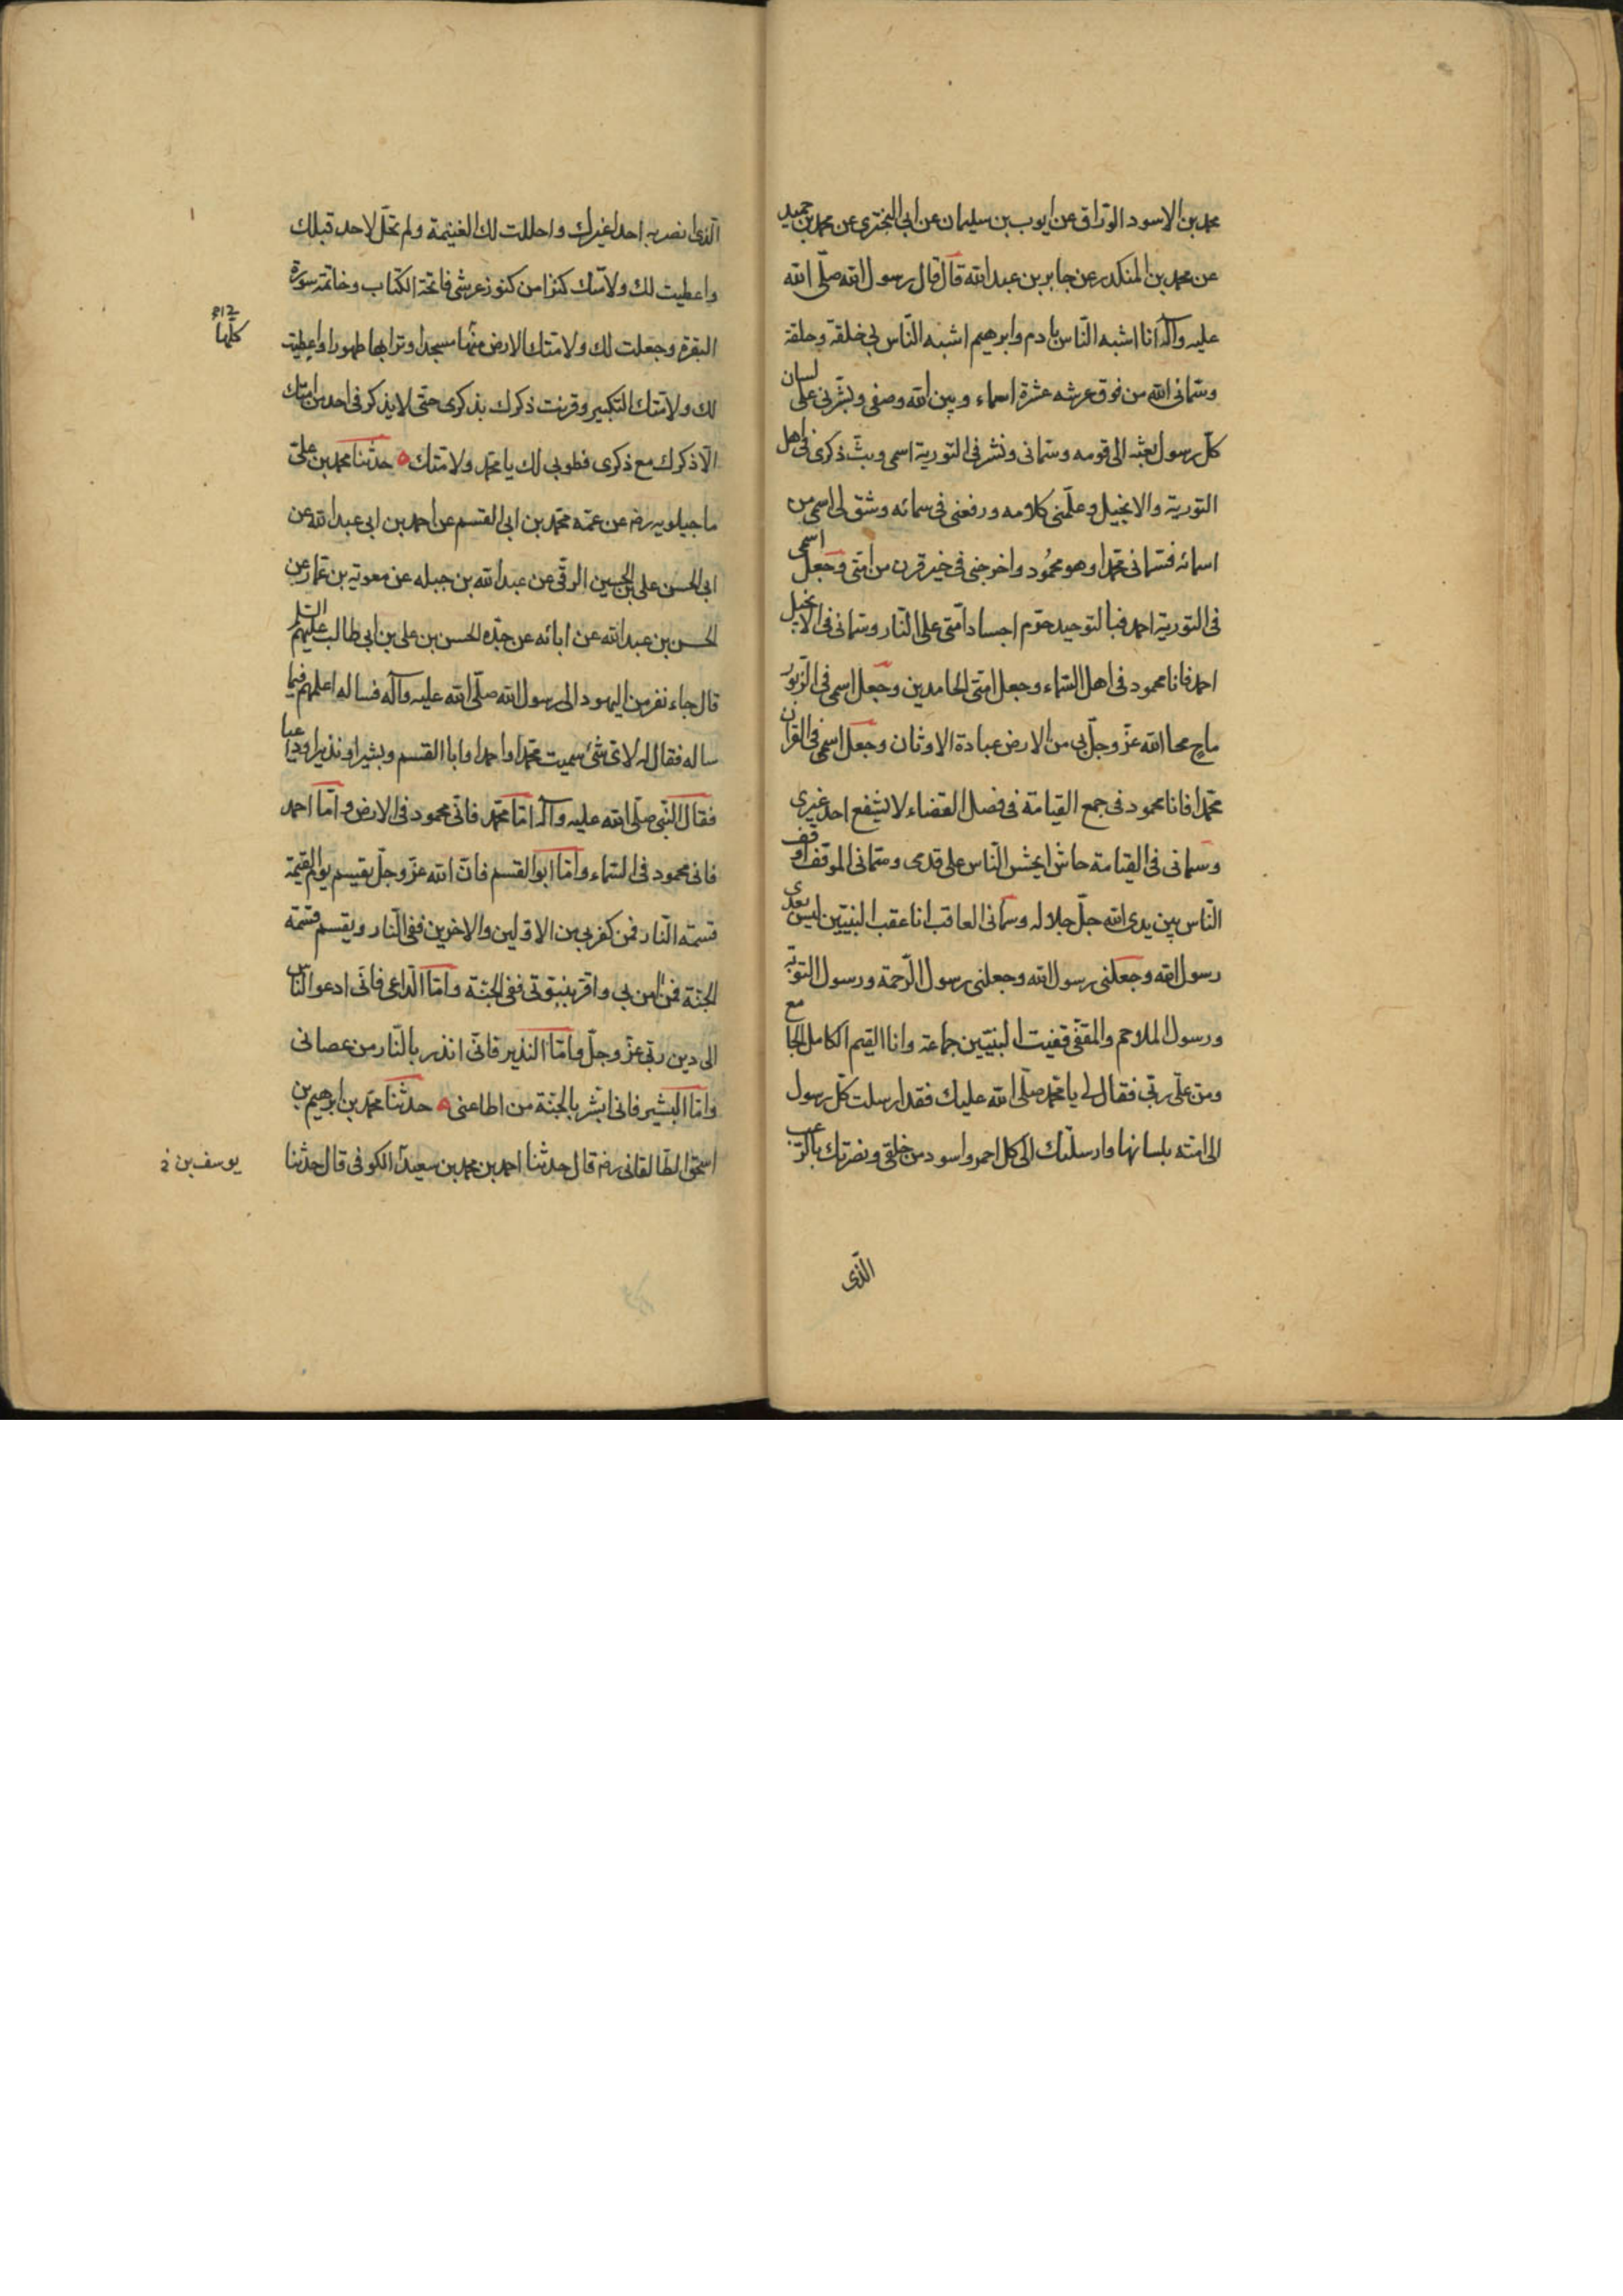 محمد بن الاسود الورّاق عن ايوب بن سليمان عن ابى البخترى عن محمد بن حميد
عن محمد بن المنكدر عن جابر بن عبد الله قال قال رسول الله صلّى الله
عليه وآله انا اشبه النّاس بادم وابرهيم اشبه النّاس بى خلقة وخلقة
وسمّانى الله من فوق عرشه عشرة اسماء وبين الله وصفى وبشّرنى على لسان
كلّ رسول بعثه الى قومه وسمّانى ونشر فى التورية اسمى وبثّ ذكرى فى اهل
التورية والانجيل وعلّمنى كلامه ورفعنى فى سمائه وشقّ لى اسمى من
اسمائه فسمّانى محمّدا وهو محمُود واخرجنى فى خير قرن من امّتى وجعل اسمى
فى التورية احمد فبالتوحيد حرّم اجساد امّتى على النّار وسمّانى فى الانجيل
احمد فانا محمود فى اهل السّماء وجعل امّتى الحامدين وجعل اسمى فى الزّبور
ماحٍ محا الله عزّ وجلّ بى من الارض عبادة الاوثان وجعل اسمى فى القران
محمّدا فانا محمود فى جمع القيامة فى فصل القضاء لا يشفع احد غيرى
وسمانى فى القيامة حاشرا يحشر النّاس على قدمى وسمّانى الموقف اوقف
النّاس بين يدى الله جلّ جلاله وسمّانى العاقب انا عقب النبيّين ليس بعدى
رسول الله وجعلنى رسول الله وجعلنى رسول الرّحمة ورسول التوبة
ورسول الملاحم والمقفّى قفيت النبيّين جماعة وانا القيم الكامل الجامع
ومن علىّ ربّى فقال لى يا محمّد صلّى الله عليك فقد ارسلت كلّ رسول
الى امّته بلسانها وارسلتك الى كل احمر واسود من خلقى ونصرتك بالرّعب
الّذى
الّذى انصر به احدا غيرك واحللت لك الغنيمة ولم تحلّ لاحد قبلك
واعطيت لك ولامّتك كنزا من كنوز عرشى فاتحة الكتاب وخاتمة سورة
البقرة وجعلت لك ولامّتك الارض منها مسجدا وترابها طهورا واعطيت
كلّها
لك ولامّتك التكبير وقرنت ذكرك بذكرى حتّى لا يذكرنى احد من امّتك
الّا ذكرك مع ذكرى فطوبى لك يا محمّد ولامّتك ه حدّثنا محمد بن علىّ
ماجيلويه رضه عن عمّه محمّد بن ابى القسم عن احمد بن ابى عبد الله عن
ابى الحسن على بن الحسين الرقّى عن عبد الله بن جبله عن معوية بن عمّار عن
الحسن بن عبد الله عن ابائه عن جدّه الحسن بن على بن ابى طالب عليهم السّلم
قال جاء نفر من اليهود الى رسول الله صلّى الله عليه وآله فساله اعلمهم فيما
ساله فقال له لاىّ شئ سميت محمّدا واحمد وابا القسم وبشيرا ونذيرا وداعيا
فقال النّبى صلّى الله عليه وآله امّا محمّد فانّى محمود فى الارض وامّا احمد
فانى محمود فى السّماء وامّا ابو القسم فانّ الله عزّ وجلّ يقسم يوم القيمة
قسمة النّار فمن كفر بى من الاوّلين والاخرين ففى النّار ويقسم قسمة
الجنّة فمن امن بى واقرّ بنبوّتى ففى الجنّة وامّا الدّاعى فانّى ادعو النّاس
الى دين ربّى عزّ وجلّ وامّا النذير فانّى انذر بالنّار من عصانى
وامّا البشير فانى ابشر بالجنّة من اطاعنى ه حدّثنا محمّد بن ابرهيم بن
اسحق الطّالقانى رضه قال حدثنا احمد بن محمد بن سعيد الكوفى قال حدّثنا
يوسف بن خ